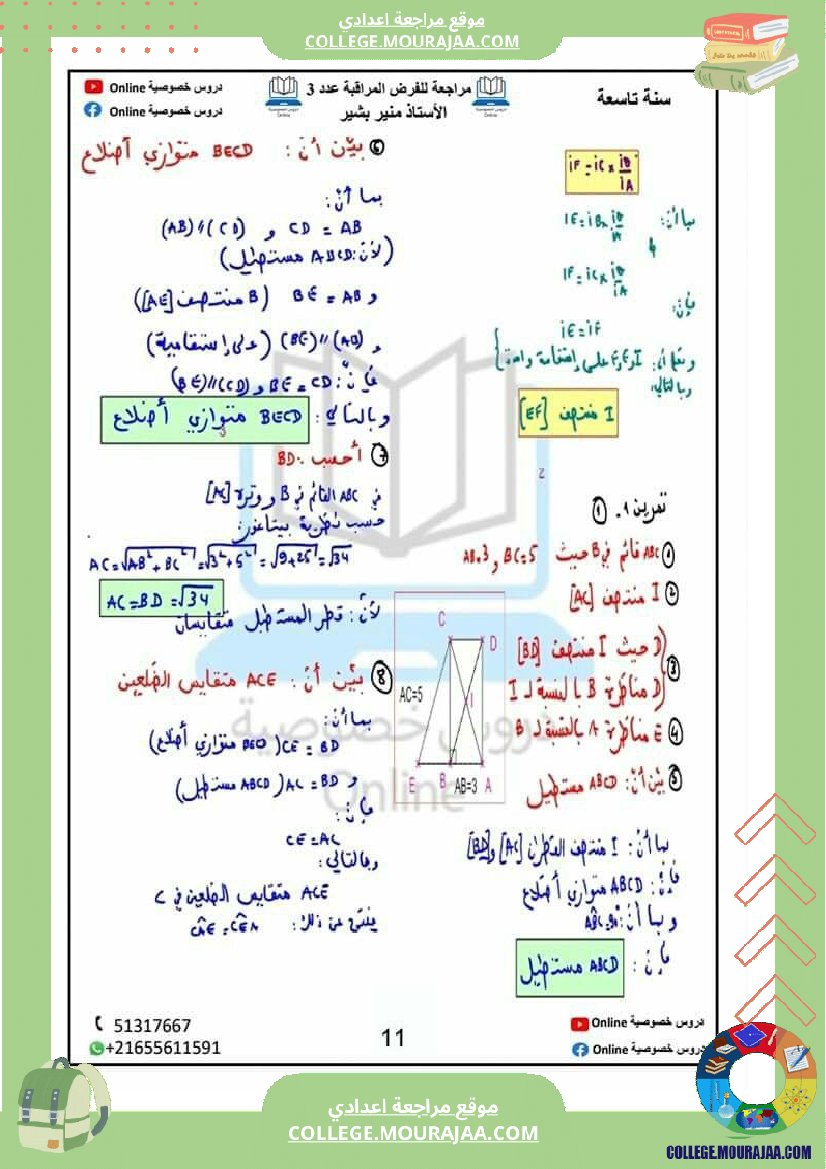 موقع مراجعة اعدادي
COLLEGE.MOURAJAA.COM
سنة تاسعة
مراجعة للفرض المراقبة عدد 3
الأستاذ منير بشير
دروس خصوصية Online
دروس خصوصية Online
iF = iC × iD/iA
بما أنّ: iE = iB × iD/iA
و
iF = iC × iD/iA
فإنّ:
iE = iF
وبالتالي:
I منتصف [EF]
تمرين 1.
① ABC قائم في B حيث BC=5 و AB=3
② I منتصف [AC]
③ D حيث I منتصف [BD]
D مناظرة B بالنسبة لـ I
④ E مناظرة A بالنسبة لـ B
⑤ بيّن أنّ: ABCD مستطيل
بما أنّ: I منتصف القطران [AC] و [BD]
فإنّ: ABCD متوازي أضلاع
و بما أنّ:
فإنّ: ABCD مستطيل
⑥ بيّن أنّ: BECD متوازي أضلاع
بما أنّ:
CD = AB و (AB)//(CD)
(لأنّ: ABCD مستطيل)
و BE = AB (B منتصف [AE])
و (BE)//(AB) (على إستقامية)
فإنّ: BE = CD و (BE)//(CD)
وبالتالي: BECD متوازي أضلاع
⑦ أحسب: BD
في ABC القائم في B و وتره [AC]
حسب نظرية بيتاغور:
AC=√AB²+BC² = √3²+5² = √9+25 = √34
AC=BD=√34
لأنّ: قطر المستطيل متقايسان
C
D
AC=5
I
E
B
AB=3
A
⑧ بيّن أنّ: ACE متقايس الضلعين
بما أنّ:
CE = BD (BECD متوازي أضلاع)
و AC = BD (ABCD مستطيل)
فإنّ:
CE = AC
وبالتالي:
ACE متقايس الضلعين في C
ينتج عن ذلك: CÂE = CÊA
دروس خصوصية Online
51317667
+21655611591
11
دروس خصوصية Online
دروس خصوصية Online
موقع مراجعة اعدادي
COLLEGE.MOURAJAA.COM
COLLEGE.MOURAJAA.COM